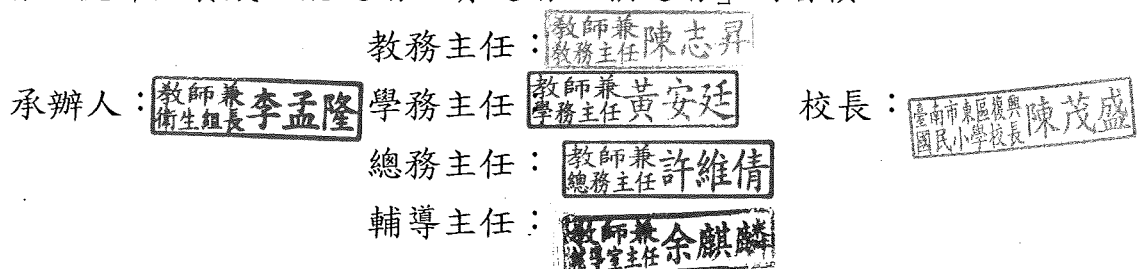 教務主任：教師兼教務主任陳志昇
承辦人：教師兼衛生組長李孟隆 學務主任 教師兼學務主任黃安廷 校長：臺南市東區復興國民小學校長陳茂盛
總務主任：教師兼總務主任許維倩
輔導主任：教師兼輔導室主任余麒麟